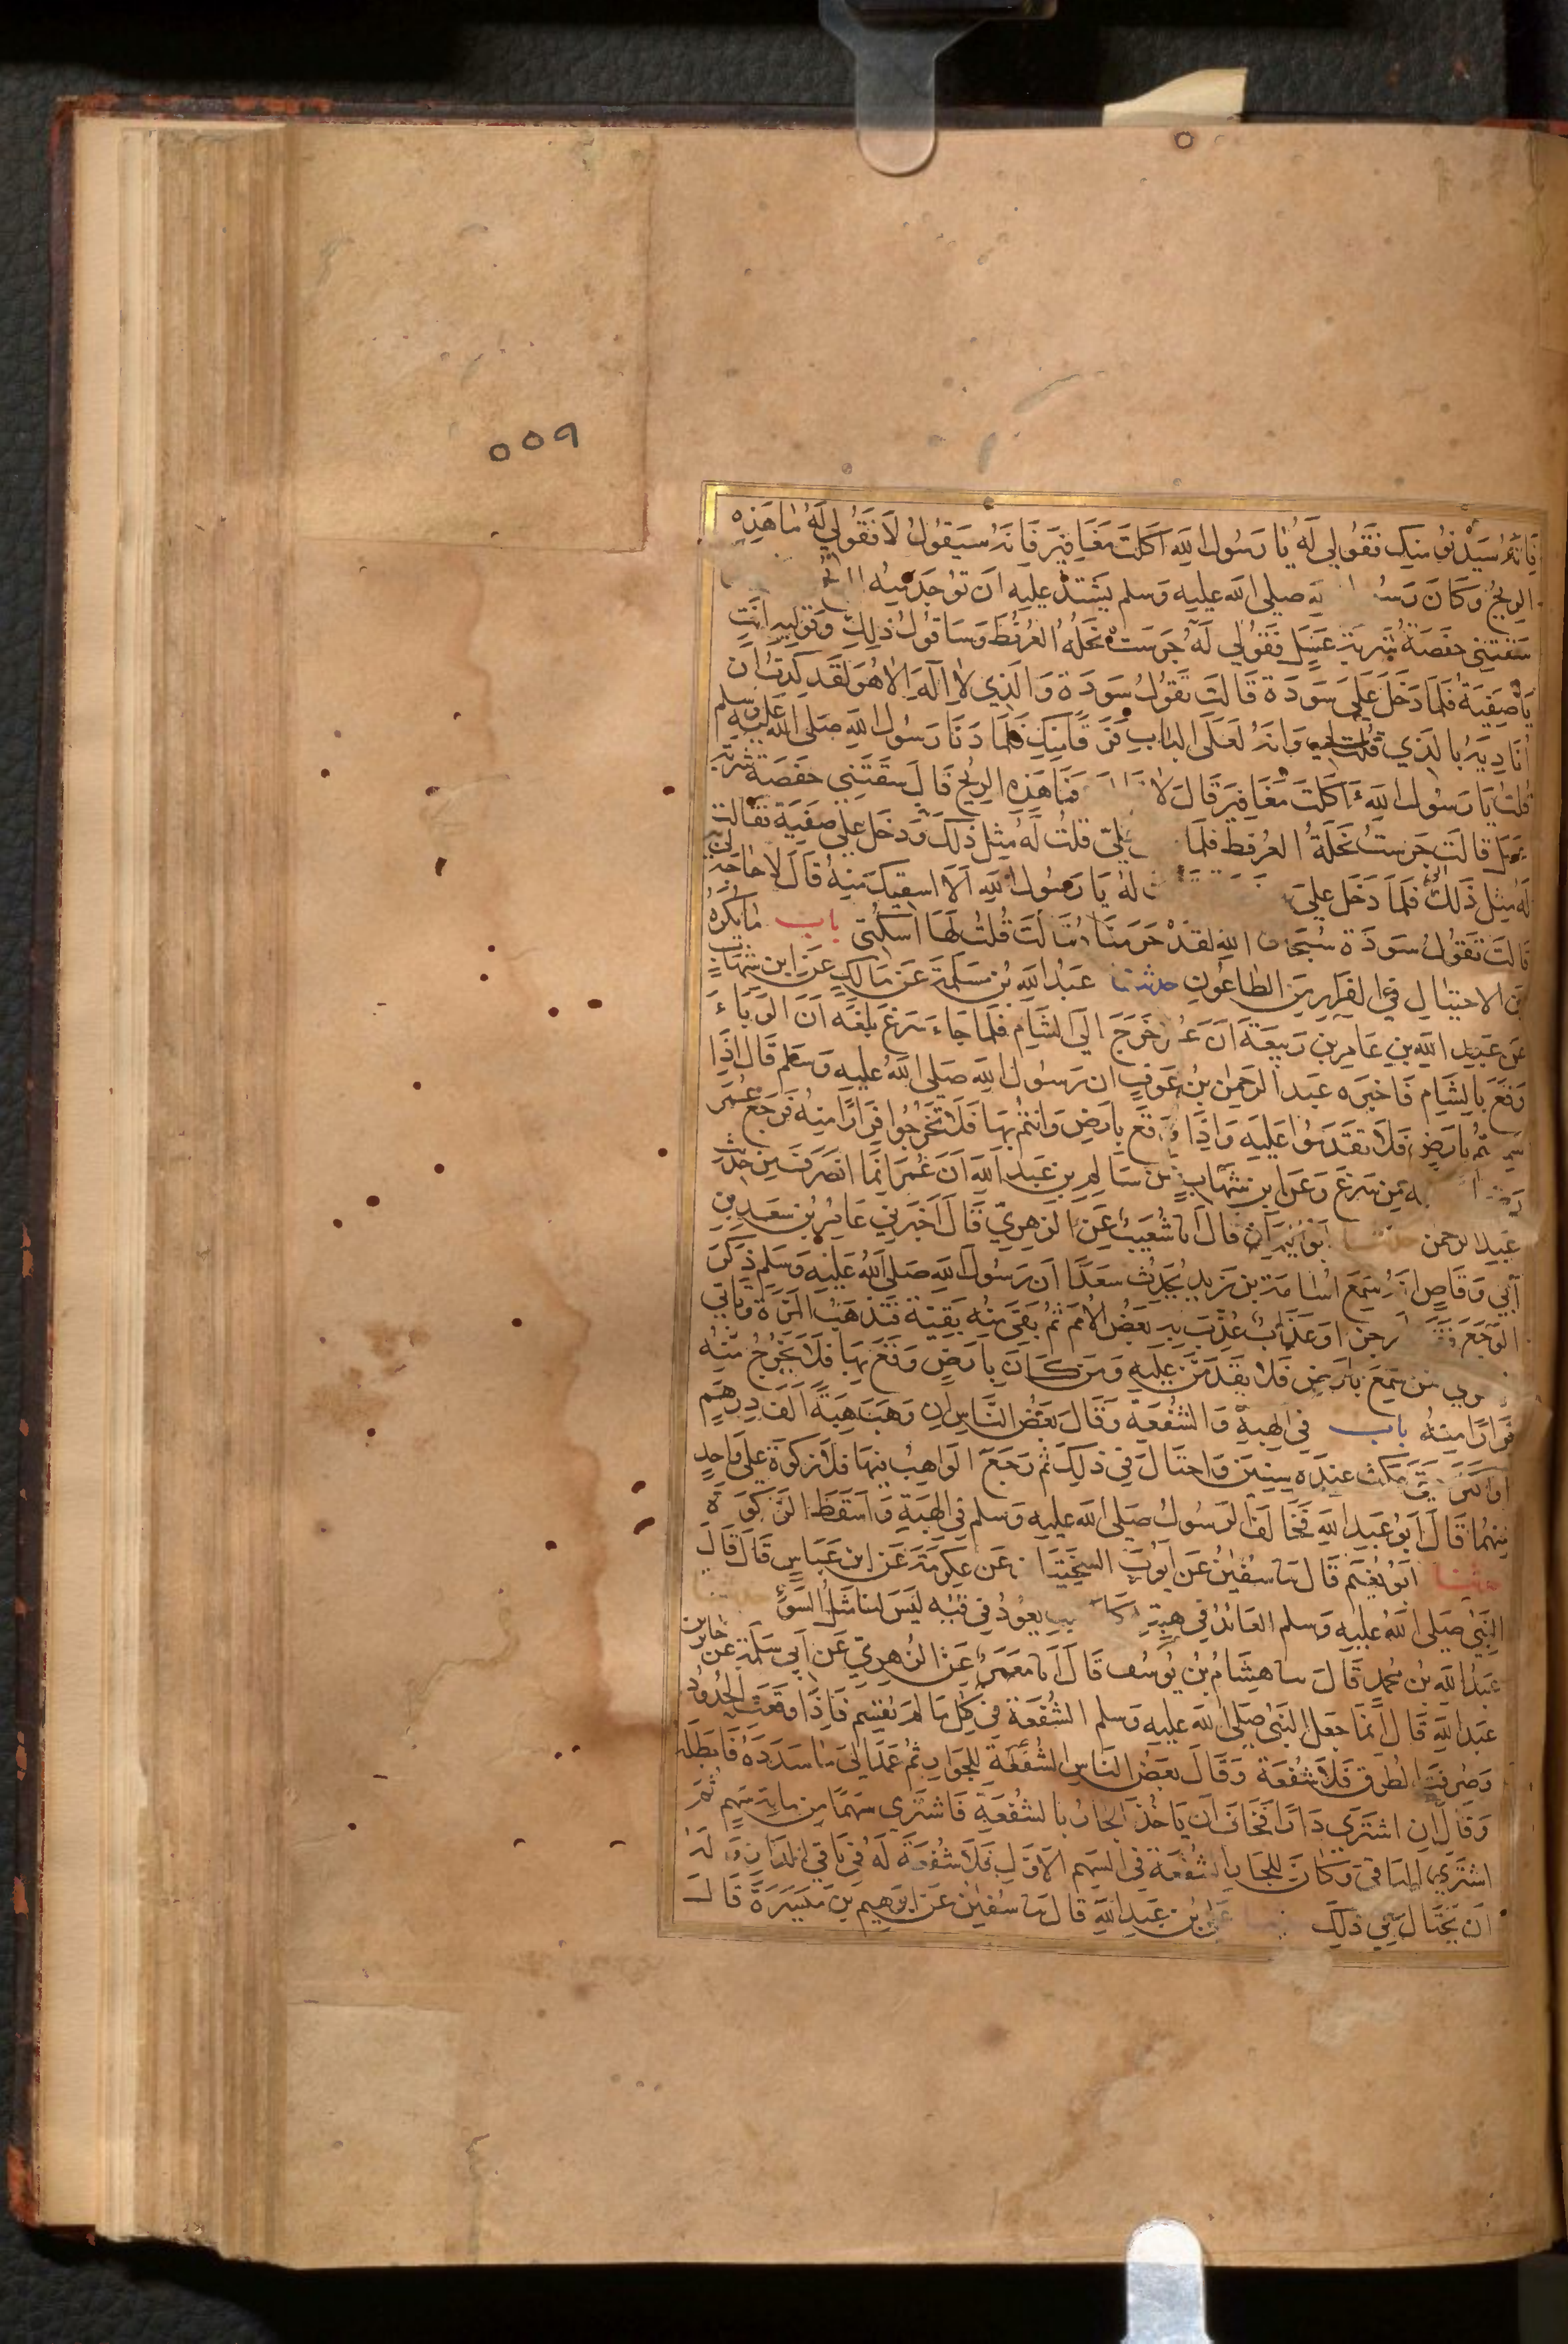 ٥٥٩
فانه سيدنو منك فقولي له يا رسول الله اكلت مغافير فانه سيقول لا فقولي له ما هذه
الريح وكان صلى الله عليه وسلم يشتد عليه ان توجد منه
سقتني حفصة شربة عسل فقولي له جرست نحله العرفط وساقول ذلك وقوليه انت
يا صفية فلما دخل على سودة قالت تقول سودة والذي لا اله الا هو لقد كدت ان
اناديه بالذي قلت لي وانه لعلى الباب فرقا منك فلما دنا رسول الله صلى الله عليه وسلم
قلت يا رسول الله ءاكلت مغافير قال لا فما هذه الريح قال سقتني حفصة شربة
عسل قالت جرست نحلة العرفط فلما علي قلت له مثل ذلك ودخل على صفية فقالت
له مثل ذلك فلما دخل على له يا رسول الله الا اسقيك منه قال لا حاجة لي به
قالت تقول سودة سبحان الله لقد حرمناه قالت قلت لها اسكتي باب ما يكره
من الاحتيال في الفرار من الطاعون حدثنا عبد الله بن مسلمة عن مالك عن ابن شهاب
عن عبد الله بن عامر بن ربيعة ان خرج الى الشام فلما جاء سرغ بلغه ان الوباء
وقع بالشام فاخبره عبد الرحمن بن عوف ان رسول الله صلى الله عليه وسلم قال اذا
سمعتم بارض فلا تقدموا عليه واذا وقع بارض وانتم بها فلا تخرجوا فرارا منه فرجع عمر
من سرغ وعن ابن شهاب عن سالم بن عبد الله ان عمر انما انصرف من حديث
عبد الرحمن حدثنا ابو اليمان قال انا شعيب عن الزهري قال اخبرني عامر بن سعد بن
ابي وقاص انه سمع اسامة بن زيد يحدث سعدا ان رسول الله صلى الله عليه وسلم ذكر
الوجع رجز او عذاب عذب به بعض الامم ثم بقي منه بقية فتذهب المرة وتاتي
سمع بارض فلا يقدمن عليه ومن كان بارض وقع بها فلا يخرج منه
فرارا منه باب في الهبة والشفعة وقال بعض الناس ان وهب هبة الف درهم
او اكثر مكث عنده سنين واحتال في ذلك ثم رجع الواهب فيها فلا زكوة على واحد
منهما قال ابو عبد الله فخالف الرسول صلى الله عليه وسلم في الهبة واسقط الزكوة
حدثنا ابو نعيم قال ثنا سفين عن ايوب السختيا عن عكرمة عن ابن عباس قال قال
النبي صلى الله عليه وسلم العائد في هبته يعود في قيئه ليس لنا مثل السوء
عبد الله بن محمد قال ثنا هشام بن يوسف قال انا معمر عن الزهري عن ابي سلمة عن جابر بن
عبد الله قال انما جعل النبي صلى الله عليه وسلم الشفعة في كل ما لم يقسم فاذا وقعت الحدود
وصرفت الطرق فلا شفعة وقال بعض الناس الشفعة للجوار ثم عمد الى ما سدده فابطله
وقال ان اشترى دارا فخاف ان ياخذ الجار بالشفعة فاشترى سهما من ماية سهم ثم
اشترى الباقي وكان للجار الشفعة في السهم الاول فلا شفعة له في باقي الدار وله
ان يحتال في ذلك علي بن عبد الله قال ثنا سفين عن ابرهيم بن ميسرة قال